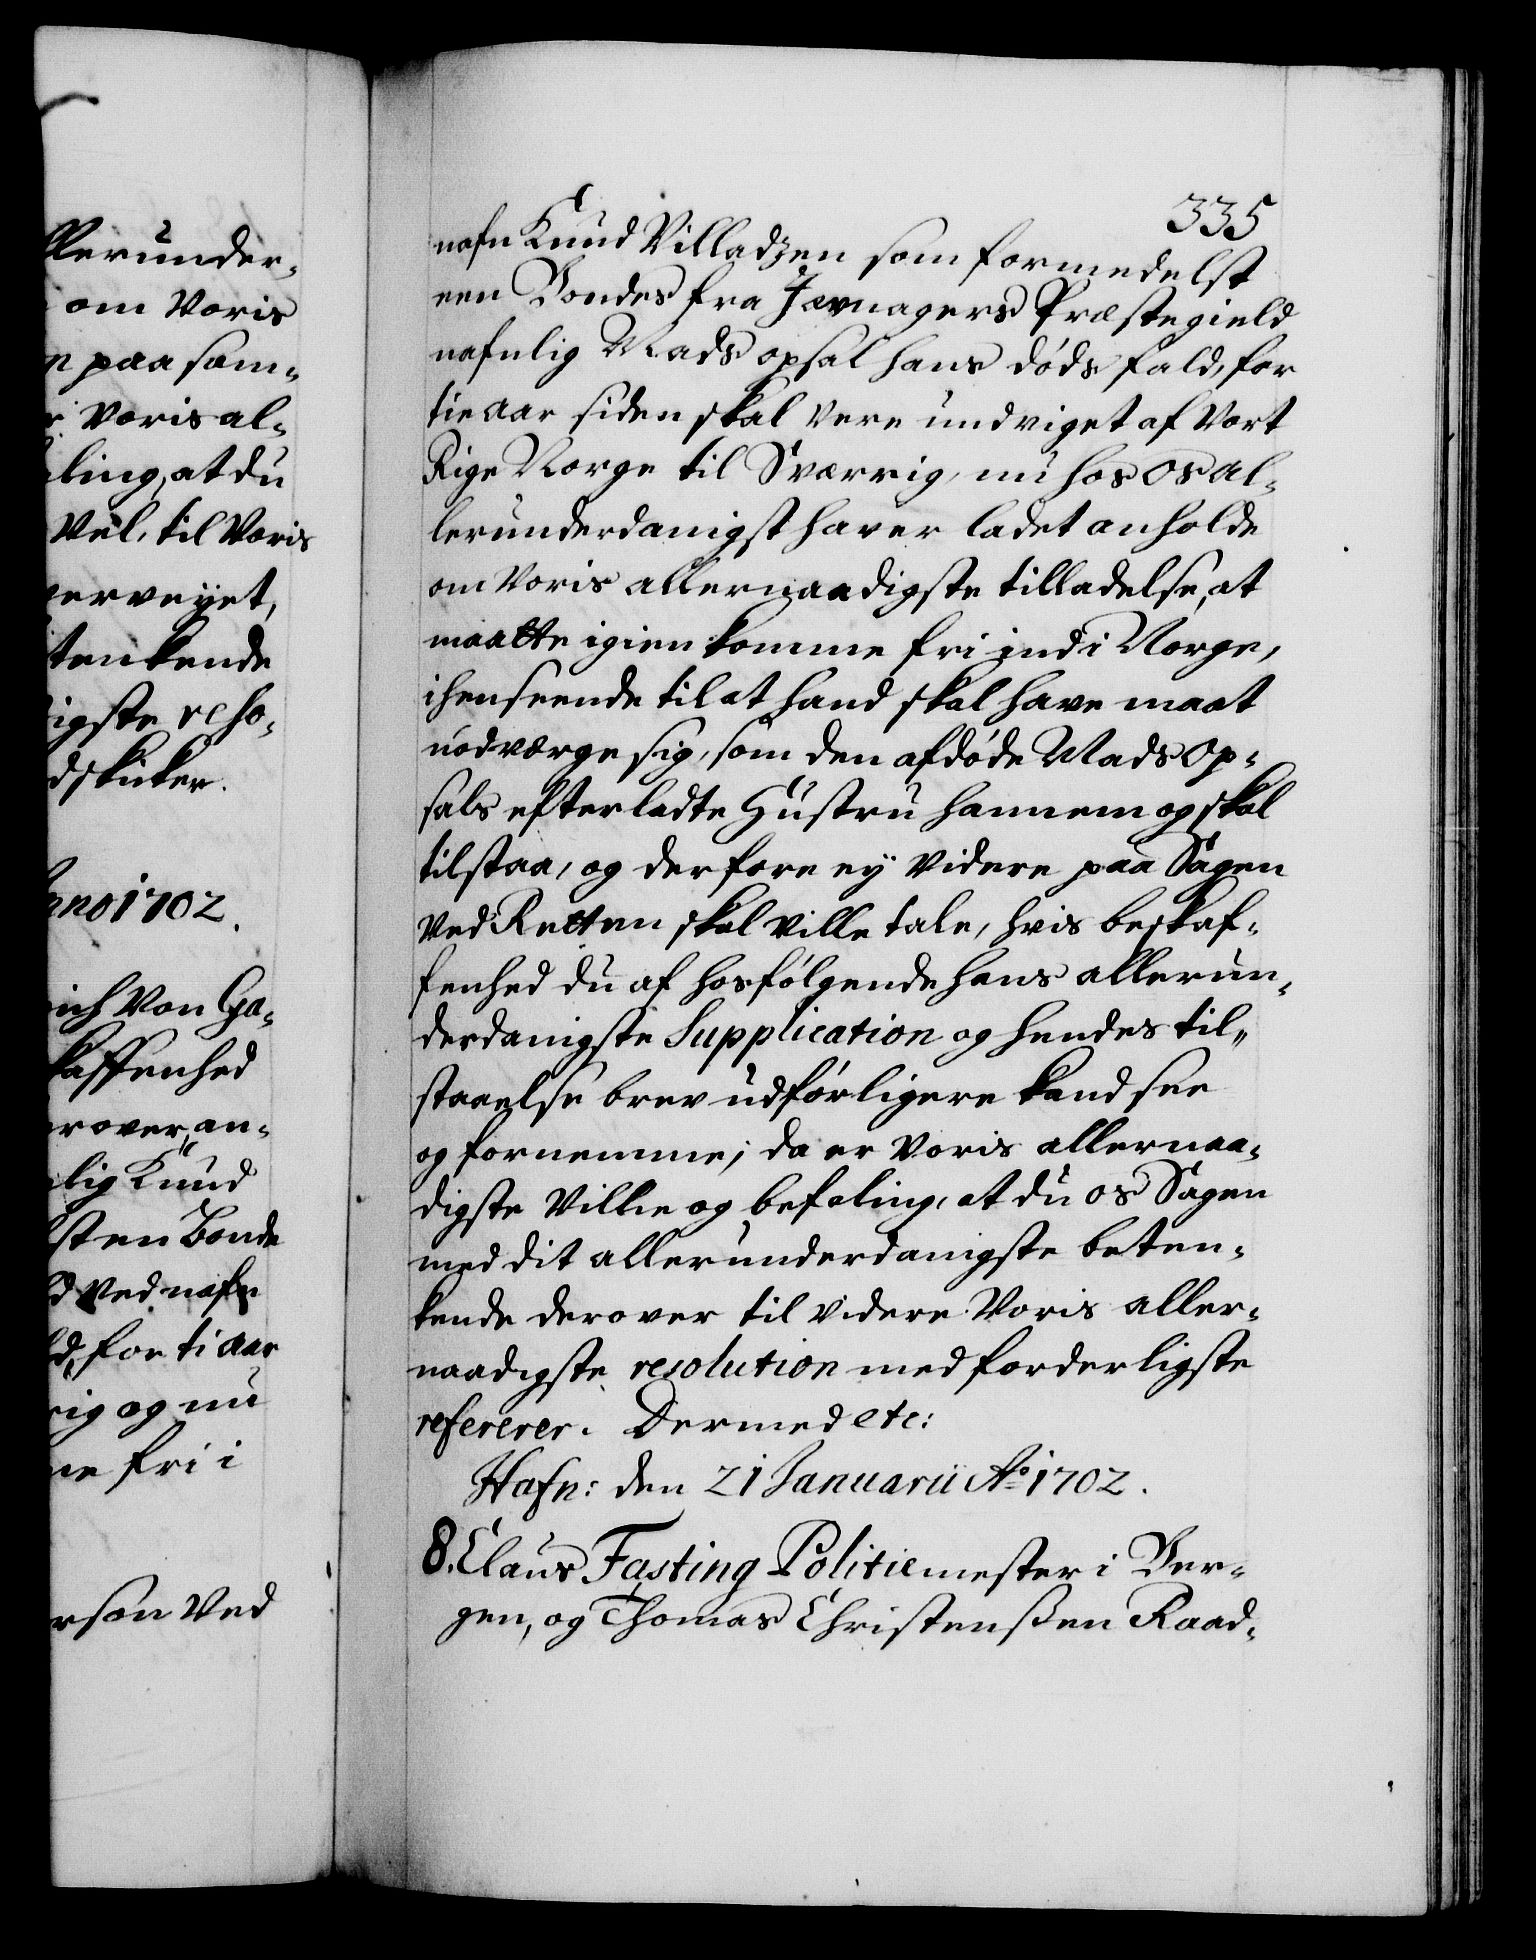 llerunder-
om Voris
n paa sam-
r Voris al-
ling, at du
Vel, til Voris
erveyet,
tenkende
igste reso-
dskicker.
Anno 1702.
ich Von Ga-
kaffenhed
rover, an-
lig Knud
sten Bonde
d Ved nafn
d, for ti aar
rig og nu
ne fri i
rson Ved
335
nafn Knud Villadzen som formedelst
een Bondes fra Jævnagers Præstegield
nafnlig Mads Opsal hans døds fald, for
tie aar siden skal Vere undviget af Vort
Rige Norge til Sverrig, nu hos Os al-
lerunderdanigst haver ladet anholde
om Voris allernaadigste tilladelse, at
maatte igien komme fri ind i Norge,
i henseende til at hand skal have maat
nodværge sig, som den afdøde Mads Op-
sals efterladte Hustru hannem og skal
tilstaa, og derfore ey Videre paa Sagen
Ved Retten skal Ville tale, hvis beskaf-
fenhed du af hosfølgende hans allerun-
derdanigste Supplication og hendes til-
staaelse brev udførligere kand see
og fornemme; da er Voris allernaa-
digste Villie og befaling, at du os Sagen
med dit allerunderdanigste beten-
kende derover til Videre Voris aller-
naadigste resolution med forderligste
refererer. Dermed etc:
Hafn: den 21 Januarii Ao 1702.
8. Claus Fasting Politiemester i Ber-
gen, og Thomas Christenßen Raad-